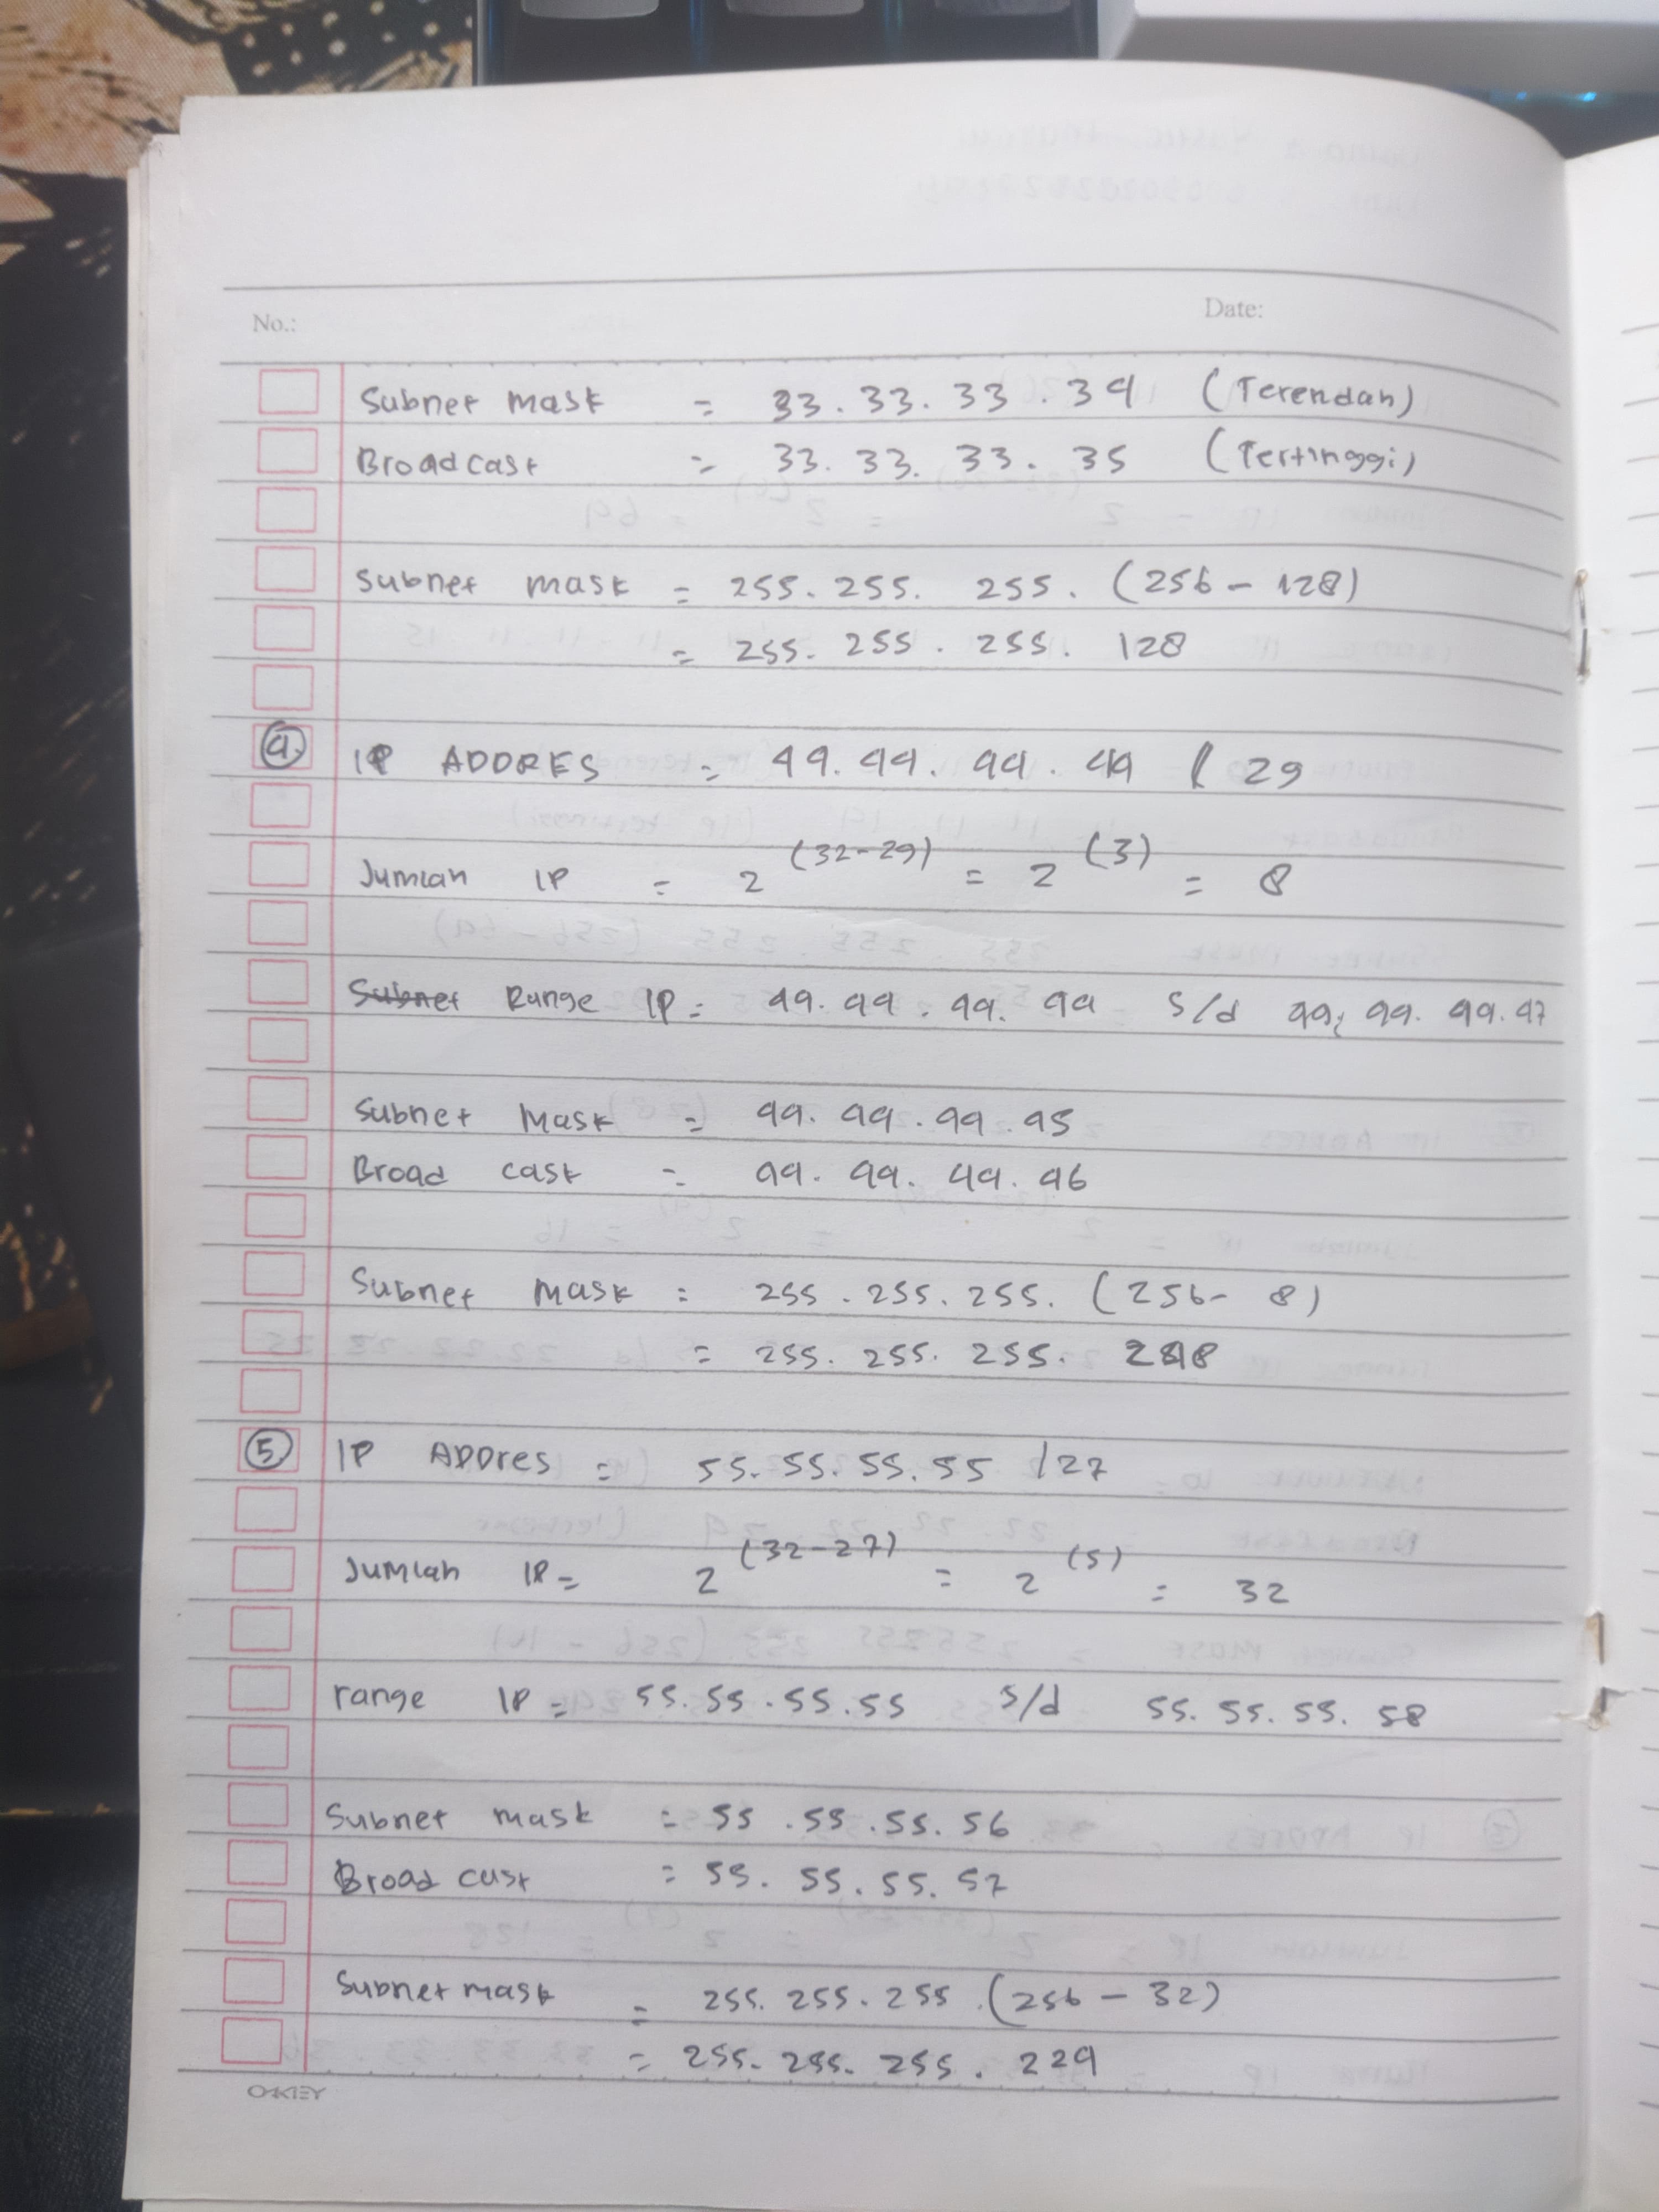 No.:
Date:
Subnet mask = 33.33.33.34 (Terendah)
Broadcast = 33.33.33.35 (Tertinggi)
Subnet mask = 255.255.255.(256-128)
= 255.255.255.128
4. IP ADDRES = 44.44.44.44 / 29
Jumlah IP = 2 (32-29) = 2 (3) = 8
Subnet Range IP = 44.44.44.44 s/d 44.44.44.47
Subnet Mask = 44.44.44.45
Broad cast = 44.44.44.46
Subnet mask = 255.255.255.(256-8)
= 255.255.255.248
5 IP ADDres = 55.55.55.55 /27
Jumlah IP = 2 (32-27) = 2 (5) = 32
range IP = 55.55.55.55 s/d 55.55.55.58
Subnet mask = 55.55.55.56
Broad cast = 55.55.55.57
Subnet mask = 255.255.255.(256-32)
= 255.255.255.224
OAKLEY